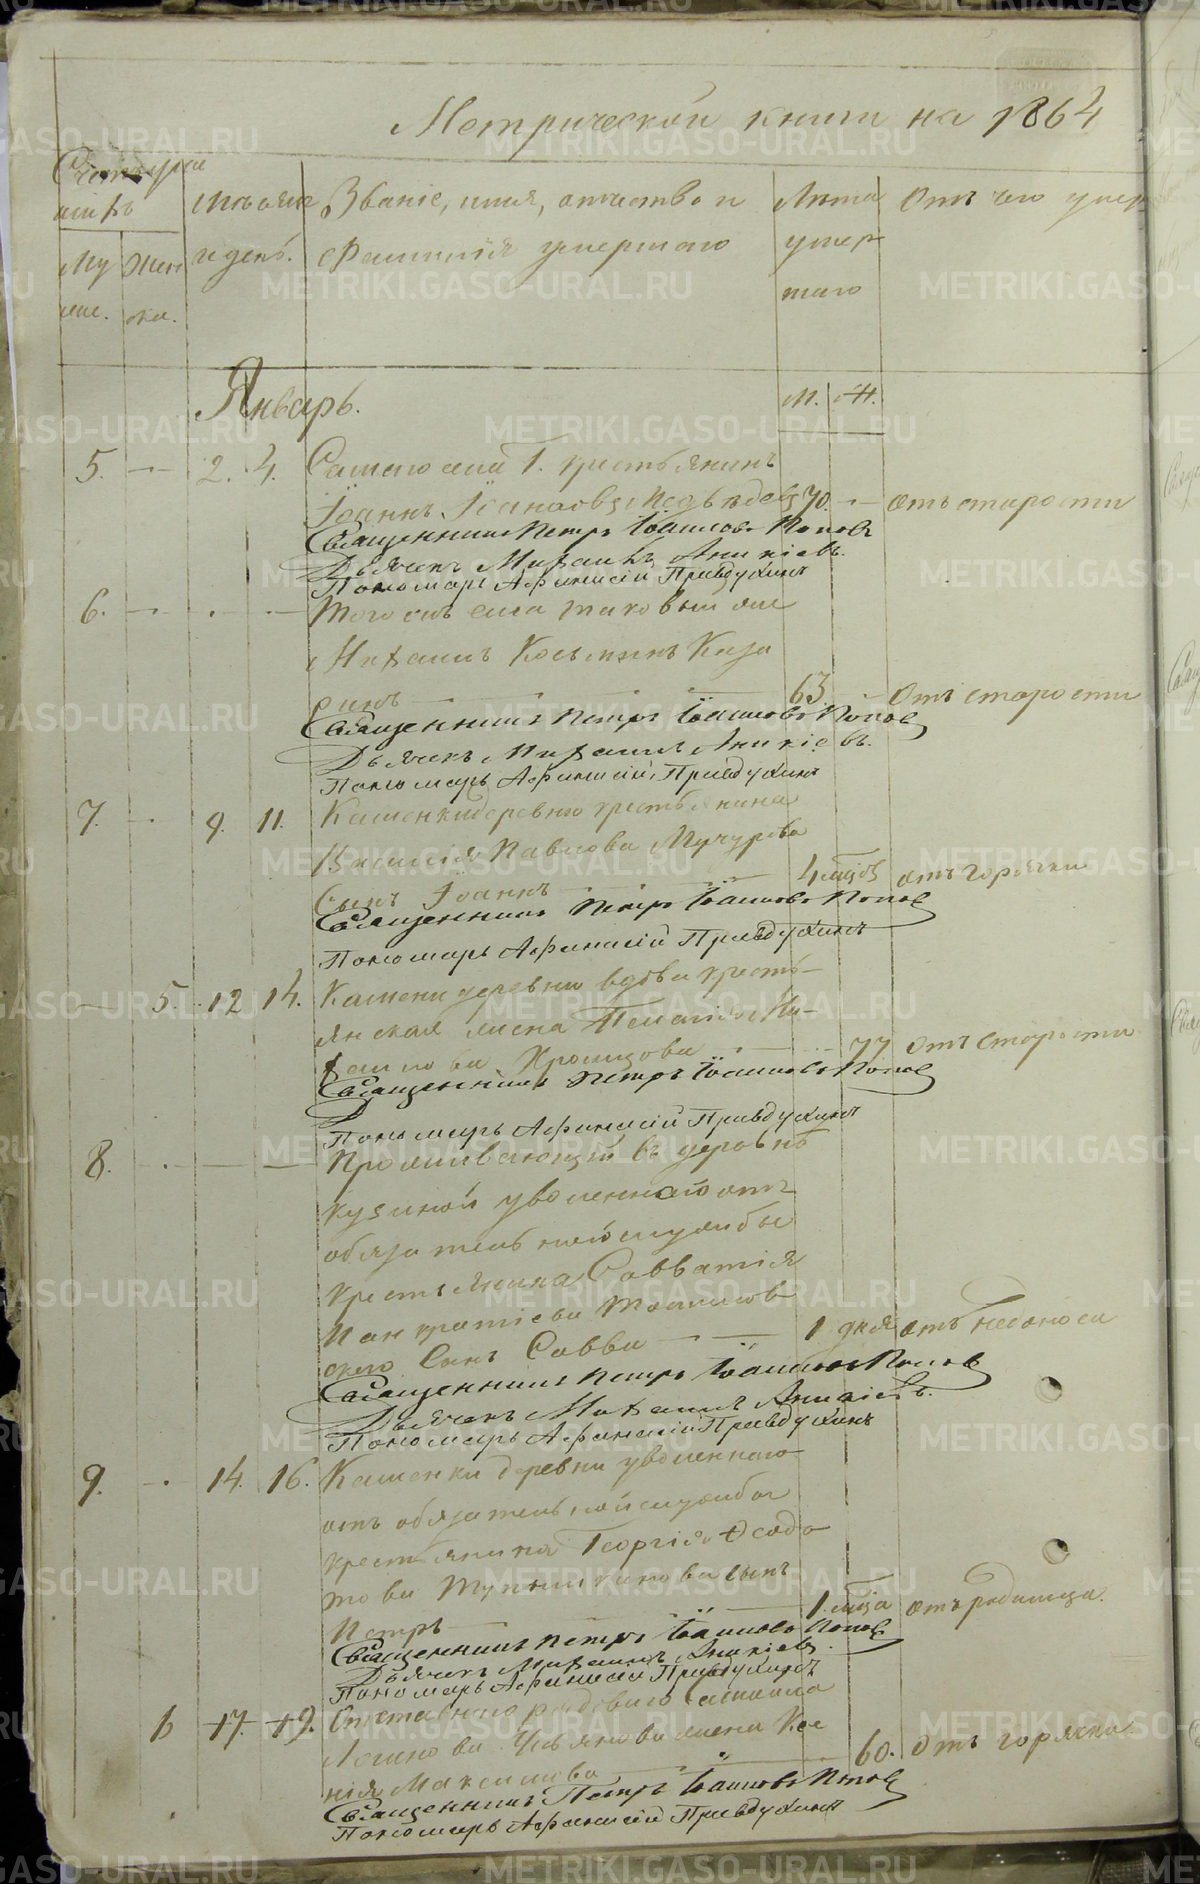 Метрической книги на 1864
Счетъ умер
шихъ
Му
жес.
Жен
ска.
Мѣсяцъ
и день.
Званіе, имя, отчество и
Фамилія умершаго
Лѣта
умер
шаго
Отъ чего умер
Январь.
М. Ж.
5. 2. 4. Самаго села Г. крестьянинъ
Іоаннъ Іоанновъ Медвѣдевъ 70. отъ старости
Священникъ Петръ Іоанновъ Поповъ
Дьячекъ Михаилъ Аникіевъ.
Пономарь Афанасій Правдухинъ
6. Того жъ села таковый же
Михаилъ Косьминъ Каза
ринъ 63. Отъ старости
Священникъ Петръ Іоанновъ Поповъ
Дьячекъ Михаилъ Аникіевъ.
Пономарь Афанасій Правдухинъ
7. 9. 11. Каменки деревни крестьянина
Василія Павлова Мучурова
сынъ Іоаннъ 4 мѣся отъ горячки
Священникъ Петръ Іоанновъ Поповъ
Пономарь Афанасій Правдухинъ
5. 12 14. Каменки деревни вдова кресть-
янская жена Пелагія Ми-
хаилова Храмцова 77 отъ старости
Священникъ Петръ Іоанновъ Поповъ
Пономарь Афанасій Правдухинъ
8. Проживающій въ деревнѣ
Кузиной уволеннаго отъ
обязательной службы
крестьянина Савватія
Панкратіева
скаго Сынъ Савва 1 дня отъ недоноса
Священникъ Петръ Іоанновъ Поповъ
Дьячекъ Михаилъ Аникіевъ.
Пономарь Афанасій Правдухинъ
9. 14. 16. Каменки деревни уволеннаго
отъ обязательной службы
крестьянина Георгія Ѳедо
това сынъ
Петръ 1. мѣця отъ родимца.
Священникъ Петръ Іоанновъ Поповъ
Дьячекъ Михаилъ Аникіевъ.
Пономарь Афанасій Правдухинъ
6 17. 19. Отставнаго рядоваго
Ульянова жена Ксе
нія Максимова 60. Отъ горячки
Священникъ Петръ Іоанновъ Поповъ
Пономарь Афанасій Правдухинъ
METRIKI.GASO-URAL.RU